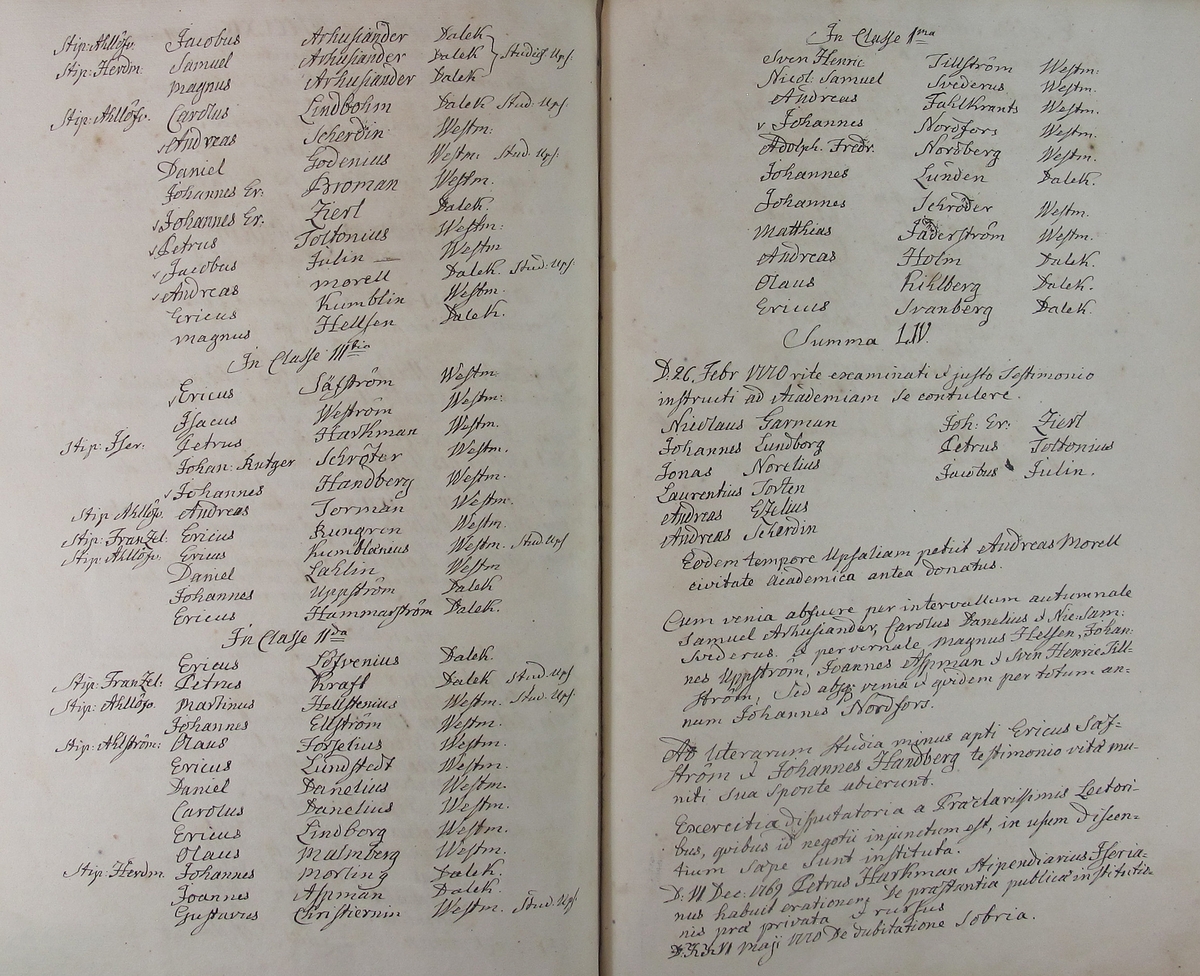 Stip: Ahllöfv. Jacobus Arhusiander Dalek
Stip: Herdm: Samuel Arhusiander Dalek } Studios Ups:
Magnus Arhusiander Dalek
Stip: Ahllöfv. Carolus Lindbohm Dalek Stud: Ups:
v Andreas Scherdin Westm:
Daniel Godenius Westm: Stud: Ups:
Johannes Er: Broman Westm.
v Johannes Er: Zierl Dalek.
v Petrus Toltonius Westm:
v Jacobus Julin Westm
v Andreas Morell Dalek. Stud: Ups:
Ericus Kumblin Westm.
Magnus Hellsen Dalek.
In Classe III tia
v Ericus Säfström Westm:
Isacus Weström Westm:
Stip: Iser: Petrus Harkman Westm.
Johan: Rutger Schröter Westm.
v Johannes Handberg Westm.
Stip Ahllöfv. Andreas Forman Westm.
Stip: Franzel: Ericus Rungren Westm.
Stip: Ahllöfv. Ericus Kumblænius Westm. Stud Ups:
Daniel Lahlin Westm
Johannes Uppström Dalek
Ericus Hammarström Dalek.
In Classe II da
Ericus Löfvenius Dalek.
Stip: Franzel: Petrus Kraft Dalek Stud Ups:
Stip: Ahllöfv. Martinus Hellstenius Westm. Stud. Ups:
Johannes Ellström Westm.
Stip: Ahlström: Olaus Forselius Westm.
Ericus Lundstedt Westm.
Daniel Danelius Westm.
Carolus Danelius Westm.
Ericus Lindborg Westm.
Olaus Malmberg Westm.
Stip: Herdm. Johannes Morling Dalek.
Joannes Aspman Dalek.
Gustavus Christiernin Westm. Stud. Ups:
In Classe I ma
Sven Henric Tillström Westm:
Nicol: Samuel Svederus Westm.
Andreas Fahlkrants Westm.
v Johannes Nordfors Westm.
Adolph. Fredr. Nordberg Westm.
Johannes Lunden Dalek.
Johannes Schröder Westm.
Matthias Faderström Westm.
Andreas Holm Dalek.
Olaus Kihlberg Dalek.
Ericus Svanberg Dalek.
Summa LIV.
D. 26. Febr 1770 rite examinati & justo Testimonio
instructi ad Academiam se contulere.
Nicolaus Garman Joh: Er: Zierl
Johannes Lundborg Petrus Toltonius
Jonas Norelius Jacobus Julin.
Laurentius Torten
Andreas Ezelius
Andreas Scherdin
Eodem tempore Upsaliam petiit Andreas Morell
civitate Academica antea donatus.
Cum venia abfuere per intervallum autumnale
Samuel Arhusiander, Carolus Danelius & Nic. Sam:
Svederus. & per vernale Magnus Helsen, Johan-
nes Uppström, Joannes Aspman & Sven Henric Till-
ström, Sed absq: venia & quidem per totum an-
num Johannes Nordfors.
Ad literarum studia minus apti Ericus Säf-
ström & Johannes Handberg testimonio vitæ mu-
niti sua sponte abierunt.
Exercitia disputatoria a Præclarissimis Lectori-
bus, quibus id negotii injunctum est, in usum discen-
tium sæpe sunt instituta.
D. 11 Dec: 1769 Petrus Harkman Stipendiarius Iseria-
nus habuit orationem de præstantia publicæ institutio-
nis præ privata & rursus
D. 11 Maji 1770 De dubitatione Sobria.